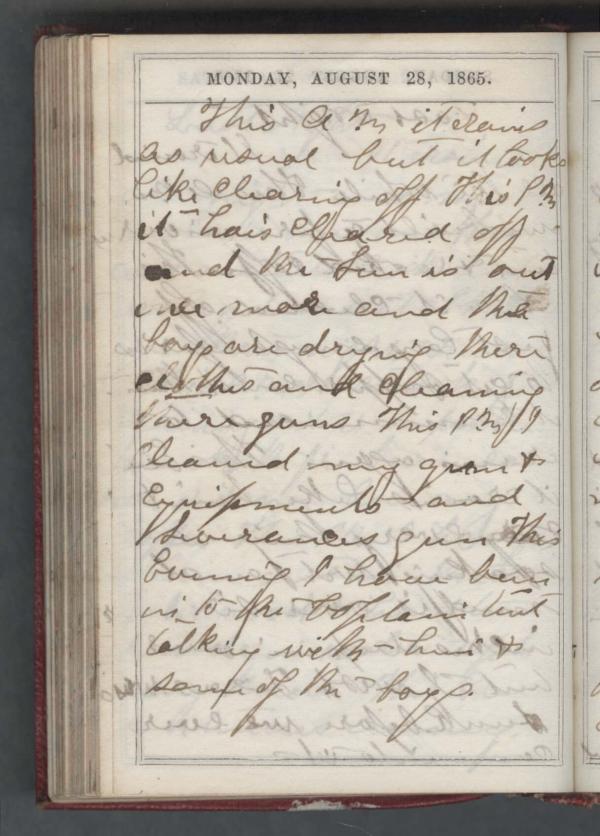 MONDAY, AUGUST 28, 1865.
This A M it rains
as usual but it looks
like Clearing off This P M
it has Cleared off
and the Sun is out
once more and the
boys are drying there
clothes and Cleaning
there guns This P M I
Cleaned my gun &
Equipments and
Severances gun This
Evening I have been
in to the Captains tent
talking with him &
some of the boys.